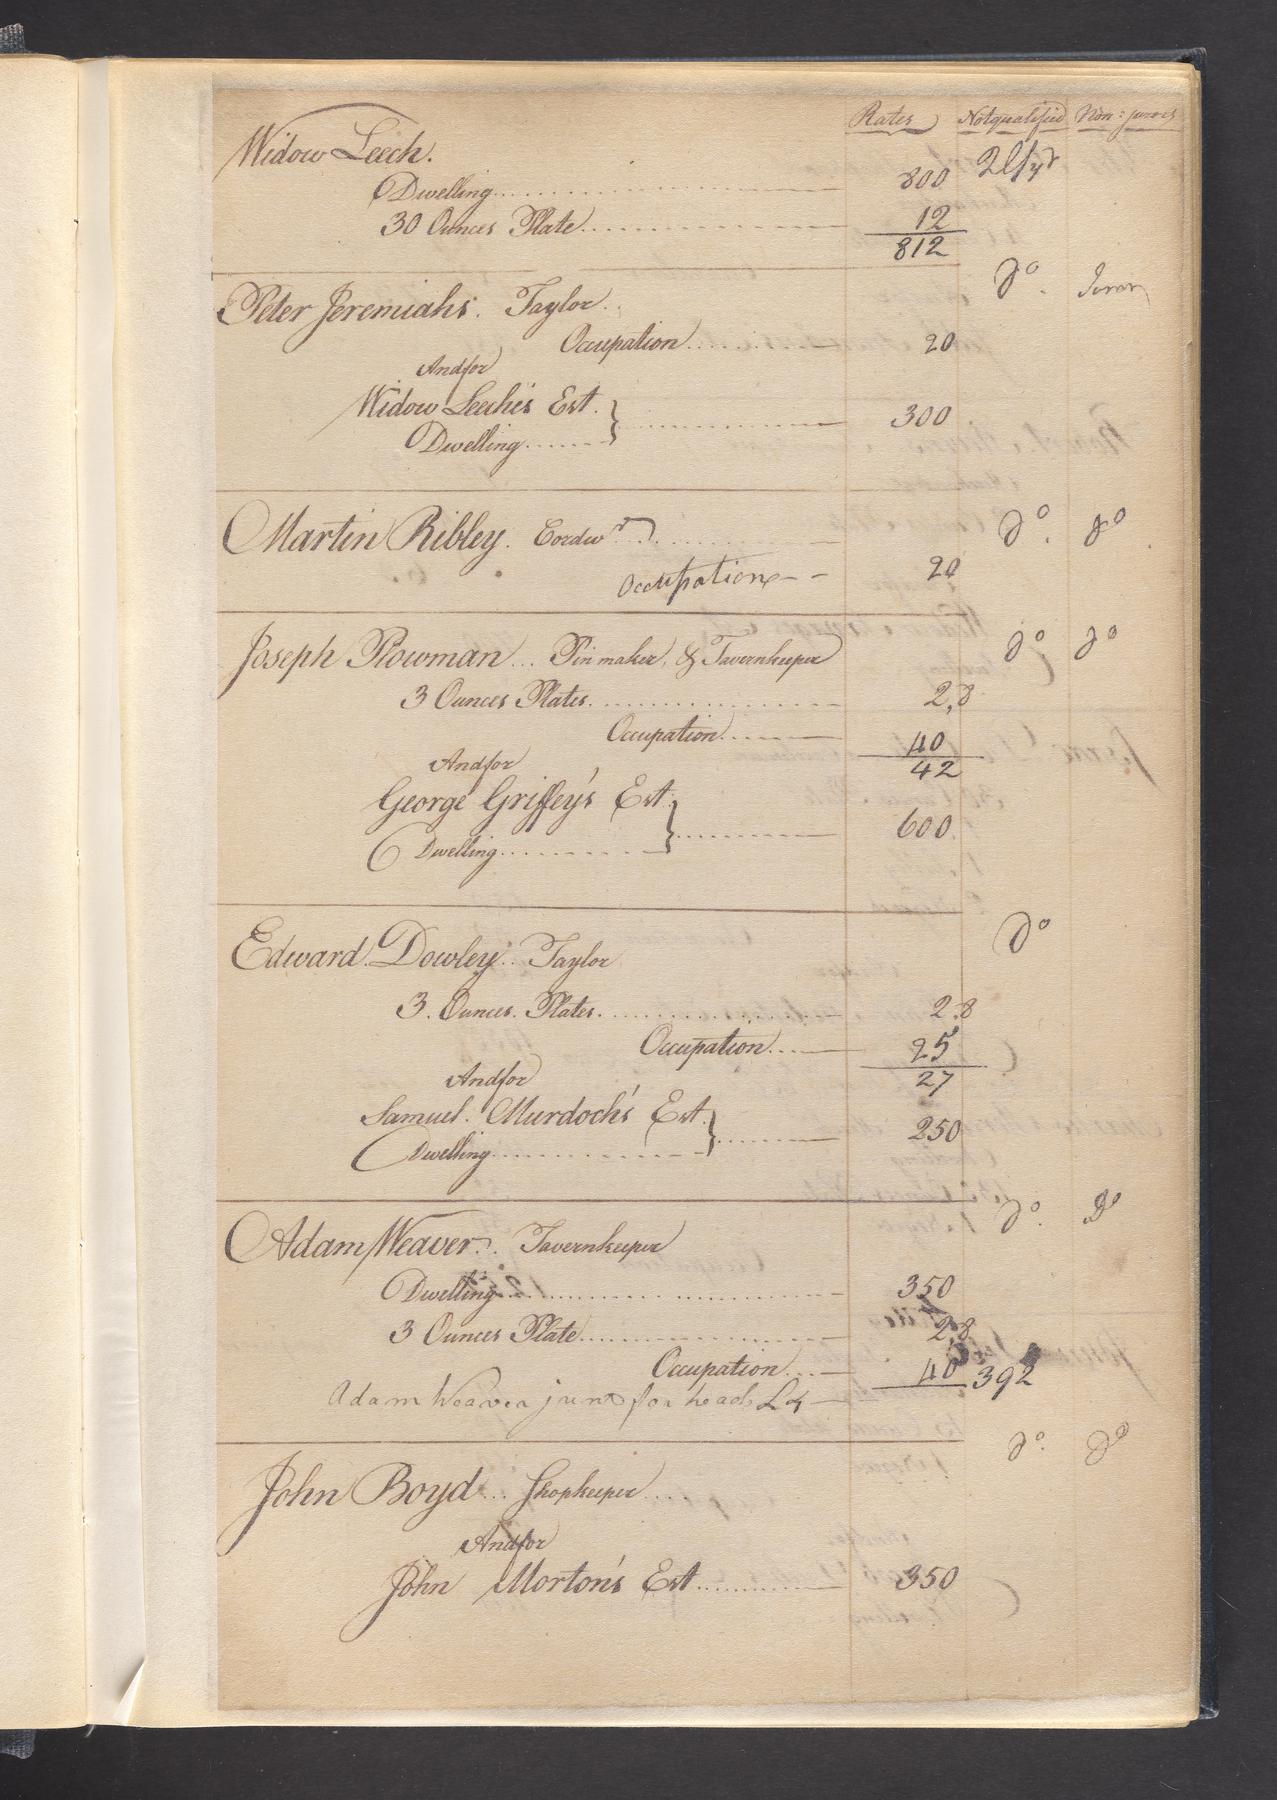 Rates Notqualified Non=jurors
Widow Leech. Qlfyd
Dwelling 800
30 Ounces Plate 12
812
Peter Jeremiahs. Taylor. do. Juror
Occupation 20
Andfor
Widow Leech's Est. 300
Dwelling
Martin Ribley. Cordwr. do. do
Occupation 20
Joseph Plowman Pin maker, & Tavernkeeper do do
3 Ounces Plates. 2,8
Occupation 40
42
Andfor
George Griffey's Est. 600
Dwelling
Edward Dowley. Taylor do
3. Ounces. Plates. 2.8
Occupation 25
27
Andfor
Samuel. Murdoch's Est. 250
Dwelling
Adam Weaver. Tavernkeeper do. Do
Dwelling 350
3 Ounces Plate 2,8
Occupation 40 392
Adam Weaver junr for head £4
John Boyd Shopkeeper do. do
Andfor
John Morton's Est 350